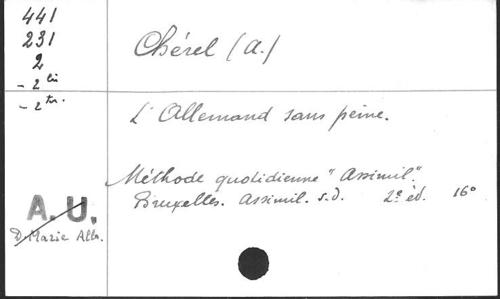 441
231
2
- 2 bis
- 2 tr.
Chérel (A.)
L'Allemand sans peine.
Méthode quotidienne "Assimil".
Bruxelles. Assimil. s.d. 2e éd. 16°
A.U.
D. Marie Albr.